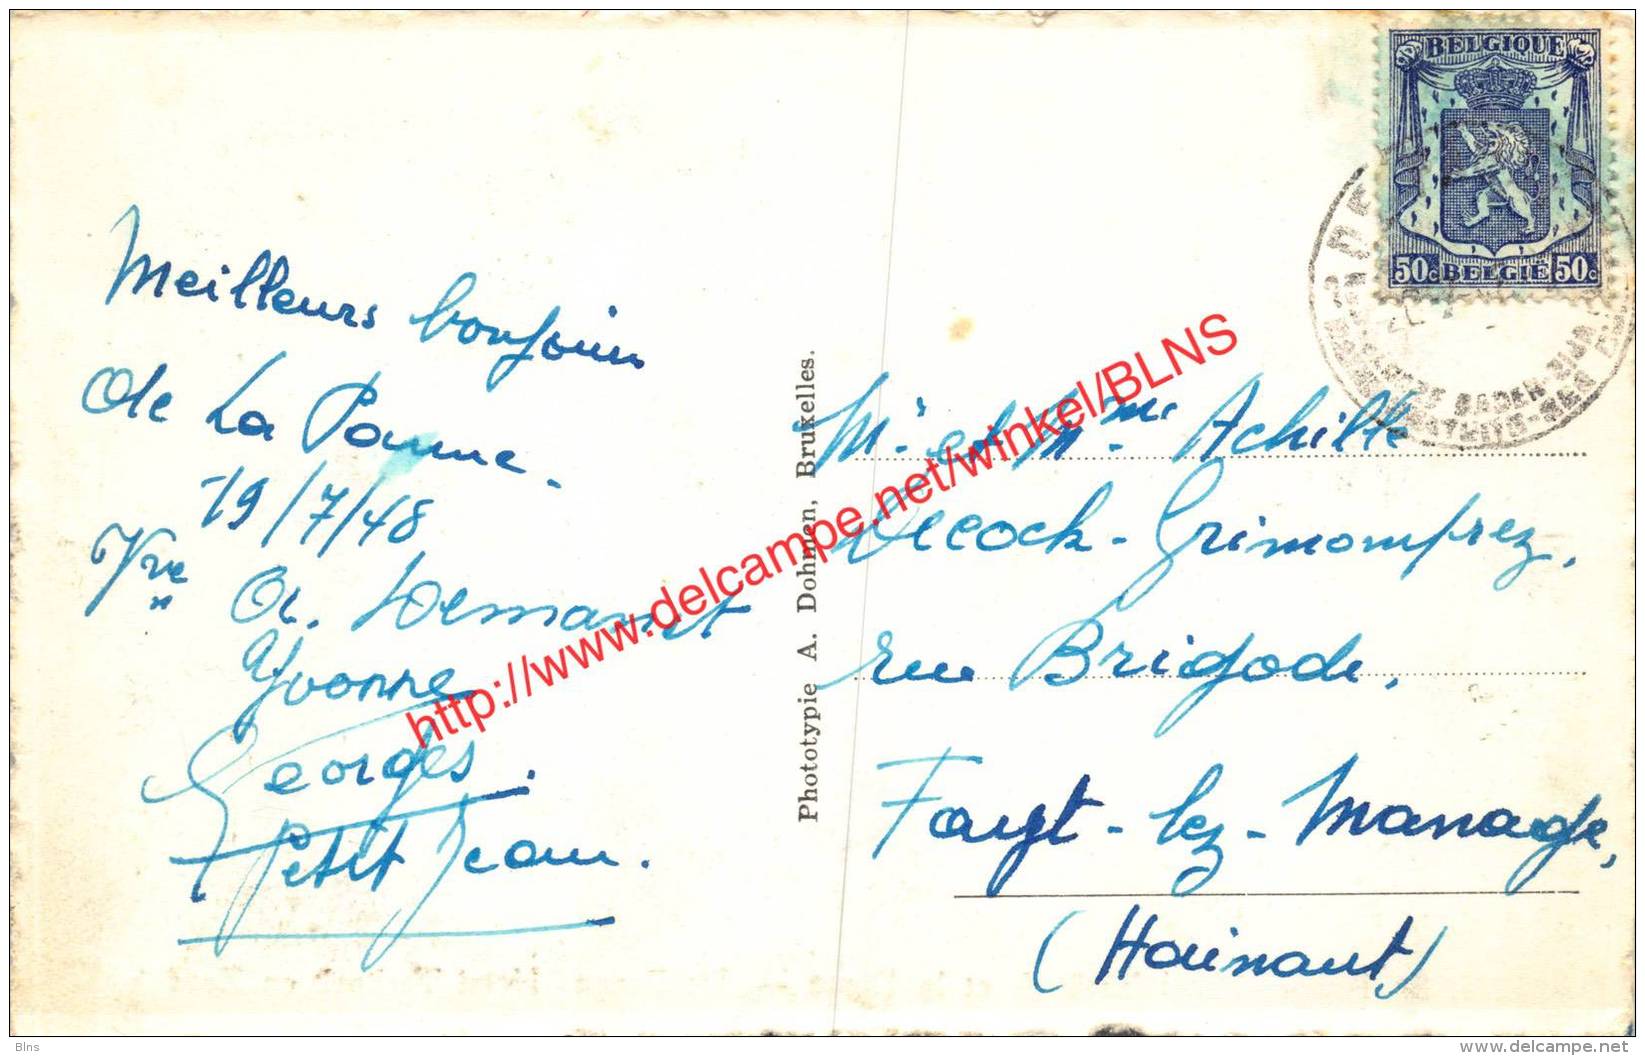 Meilleurs bonjours
de La Panne -
19/7/48
Vve A. Demaret
Yvonne
Georges.
Petit Jean.
Phototypie A. Dohmen, Bruxelles.
BELGIQUE
50c BELGIË 50c
Mr. et Mme. Achille
Decock-Grimomprez,
rue Brigode,
Fayt-lez-Manage,
(Hainaut)
http://www.delcampe.net/winkel/BLNS
Blns
delcampe.net